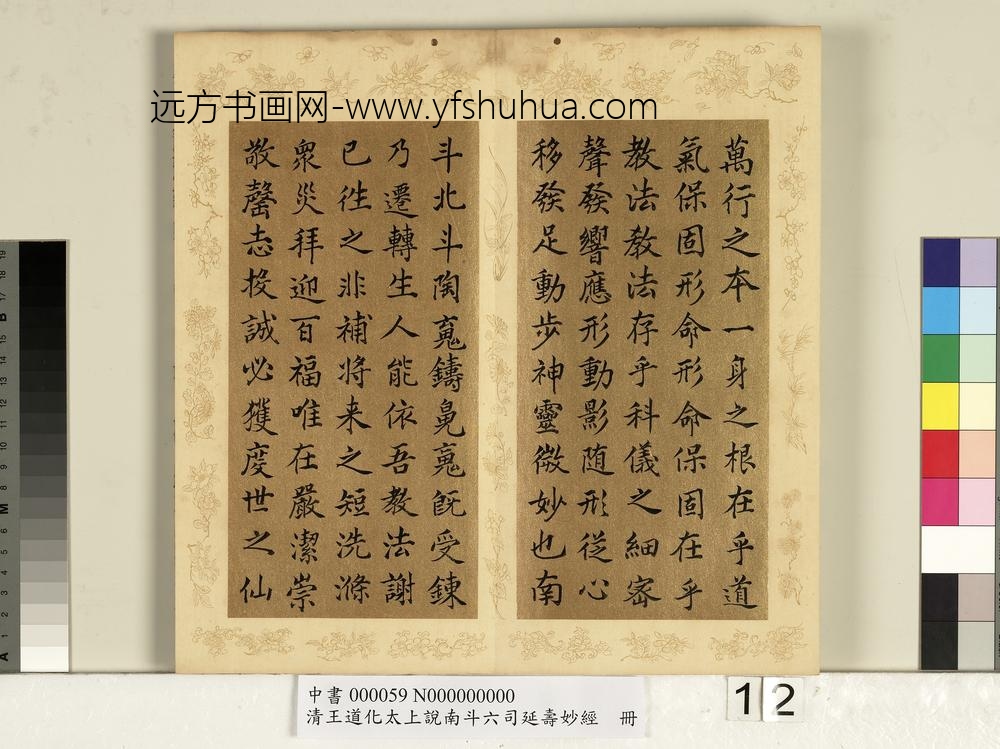 远方书画网-www.yfshuhua.com
萬行之夲一身之根在乎道
氣保固形命形命保固在乎
教法教法存乎科儀之細密
聲發響應形動影随形從心
移發足動步神靈微妙也南
斗北斗陶鑄旣受鍊
乃遷轉生人能依吾教法謝
已徃之非補将来之短洗滌
衆災拜迎百福唯在嚴潔崇
敬罄志投誠必獲度世之仙
中書 000059 N000000000
清王道化太上說南斗六司延壽妙經 冊
12